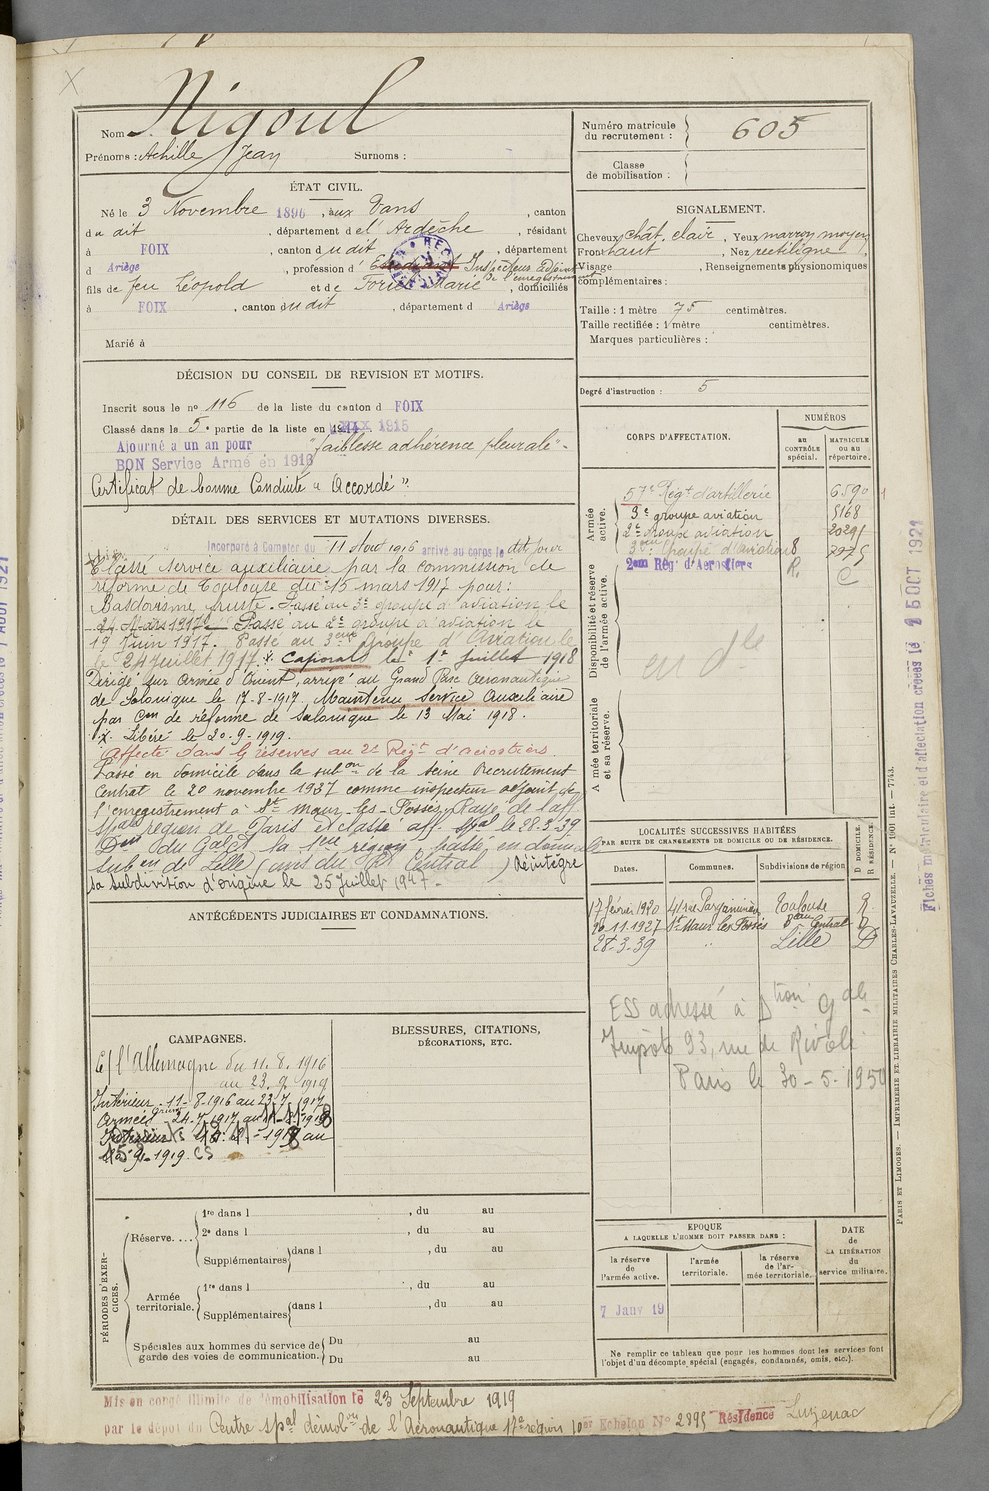 Nom Nigoul
Prénoms : Achille Jean Surnoms :
Numéro matricule du recrutement : 605
Classe de mobilisation :
ÉTAT CIVIL.
Né le 3 Novembre 1896, aux Vans, canton
du dit, département de l'Ardèche, résidant
à FOIX, canton du dit, département
d Ariège, profession d' Etudiant Inspecteur adjoint de l'enregistrement
fils de feu Léopold et de Marie, domiciliés
à FOIX, canton du dit, département d Ariège
Marié à
SIGNALEMENT.
Cheveux chât. clair, Yeux marron moyen
Front haut, Nez rectiligne
Visage, Renseignements physionomiques
complémentaires :
Taille : 1 mètre 75 centimètres.
Taille rectifiée : 1 mètre centimètres.
Marques particulières :
Degré d'instruction : 5
DÉCISION DU CONSEIL DE REVISION ET MOTIFS.
Inscrit sous le no 116 de la liste du canton d FOIX
Classé dans la 5e partie de la liste en 1915
Ajourné a un an pour "faiblesse adhérence pleurale" -
BON Service Armé en 1916
Certificat de bonne Conduite "Accordé".
DÉTAIL DES SERVICES ET MUTATIONS DIVERSES.
Incorporé à Compter du 11 Aout 1916 arrivé au corps le dit jour
Classé service auxiliaire par la commission de
réforme de Toulouse du 15 mars 1917 pour :
Basdowisme fruste. Passé au 3e groupe d'aviation le
24 Mars 1917. Passé au 2e groupe d'aviation le
19 Juin 1917. Passé au 3ème Groupe d'Aviation le
le 24 Juillet 1917. x. Caporal le 1er Juillet 1918
Dirigé sur Armée d'Orient, arrivé au Grand Parc Aéronautique
de Salonique le 17-8-1917. Maintenu Service Auxiliaire
par Con de réforme de Salonique le 13 Mai 1918.
x. Libéré le 20-9-1919.
Affecté dans les réserves au 2e Régt d'aérostiers
Passé en domicile dans la subon de la Seine Recrutement
Central le 20 novembre 1937 comme inspecteur adjoint de
l'enregistrement à St Maur-les-Fossés. Rayé de l'aff
spale région de Paris et classé aff. spal le 28.3.39
Don du la 1ère région, passé en domicile
subon de Lille (ans du Rt Central) Réintégré
sa subdivision d'origine le 25 Juillet 1947.
CORPS D'AFFECTATION.
NUMÉROS
au CONTRÔLE spécial.
MATRICULE ou au répertoire.
Armée active.
57e Régt d'artillerie 6590
3e groupe aviation 5168
2e Groupe aviation 20291
3ème Groupe d'Aviation
2em Rég d'Aerostiers R. C
Disponibilité et réserve de l'armée active.
Armée territoriale et sa réserve.
LOCALITÉS SUCCESSIVES HABITÉES
PAR SUITE DE CHANGEMENTS DE DOMICILE OU DE RÉSIDENCE.
Dates. Communes. Subdivisions de région
D DOMICILE. R RÉSIDENCE.
17 février 1920 41 rue Pargaminières Toulouse R.
20.11.1927 St Maur les Fossés Central D
28-3-39 " Lille D
ESS adressé à Dtion Gale
Impôts 93, rue de Rivoli
Paris le 30-5-1950
ANTÉCÉDENTS JUDICIAIRES ET CONDAMNATIONS.
CAMPAGNES.
C/ l'Allemagne du 11.8.1916
au 23.9.1919
Intérieur 11-8-1916 au 23.7.1917
Armée Orient 24-7-1917 au
Intérieur au
1919. CS
BLESSURES, CITATIONS,
DÉCORATIONS, ETC.
PÉRIODES D'EXERCICES.
Réserve....
1re dans l , du au
2e dans l , du au
Supplémentaires dans l , du au
Armée territoriale.
1re dans l , du au
Supplémentaires dans l , du au
Spéciales aux hommes du service de garde des voies de communication.
Du au
Du au
EPOQUE
A LAQUELLE L'HOMME DOIT PASSER DANS :
la réserve de l'armée active.
l'armée territoriale.
la réserve de l'armée territoriale.
DATE de LA LIBÉRATION du service militaire.
7 Janv 19
Ne remplir ce tableau que pour les hommes dont les services font
l'objet d'un décompte spécial (engagés, condamnés, omis, etc.).
Mis en congé illimité de démobilisation le 23 Septembre 1919
par le dépôt du Centre spal démobon de l'Aéronautique 17e région 10er Echelon No 2895 Résidence Luzenac
PARIS ET LIMOGES. — IMPRIMERIE ET LIBRAIRIE MILITAIRES CHARLES-LAVAUZELLE. — No 1001 int. — 7743.
Fiches matriculaire et d'affectation créées le 25 OCT 1921